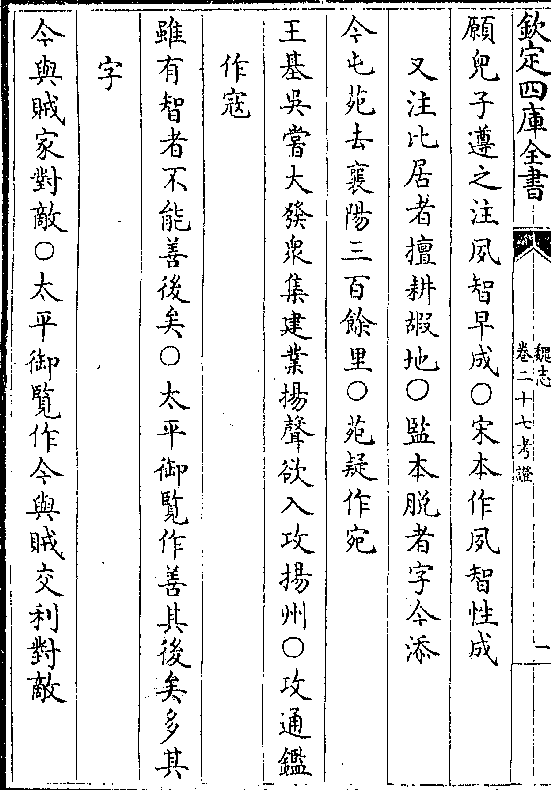 欽定四庫全書
魏志
卷二十七考證
一
願兒子遵之注夙智早成○宋本作夙智性成
又注比居者擅耕嘏地○監本脫者字今添
今屯苑去襄陽三百餘里○苑疑作宛
王基吳嘗大發衆集建業揚聲欲入攻揚州○攻通鑑
作寇
雖有智者不能善後矣○太平御覽作善其後矣多其
字
今與賊家對敵○太平御覽作今與賊交利對敵